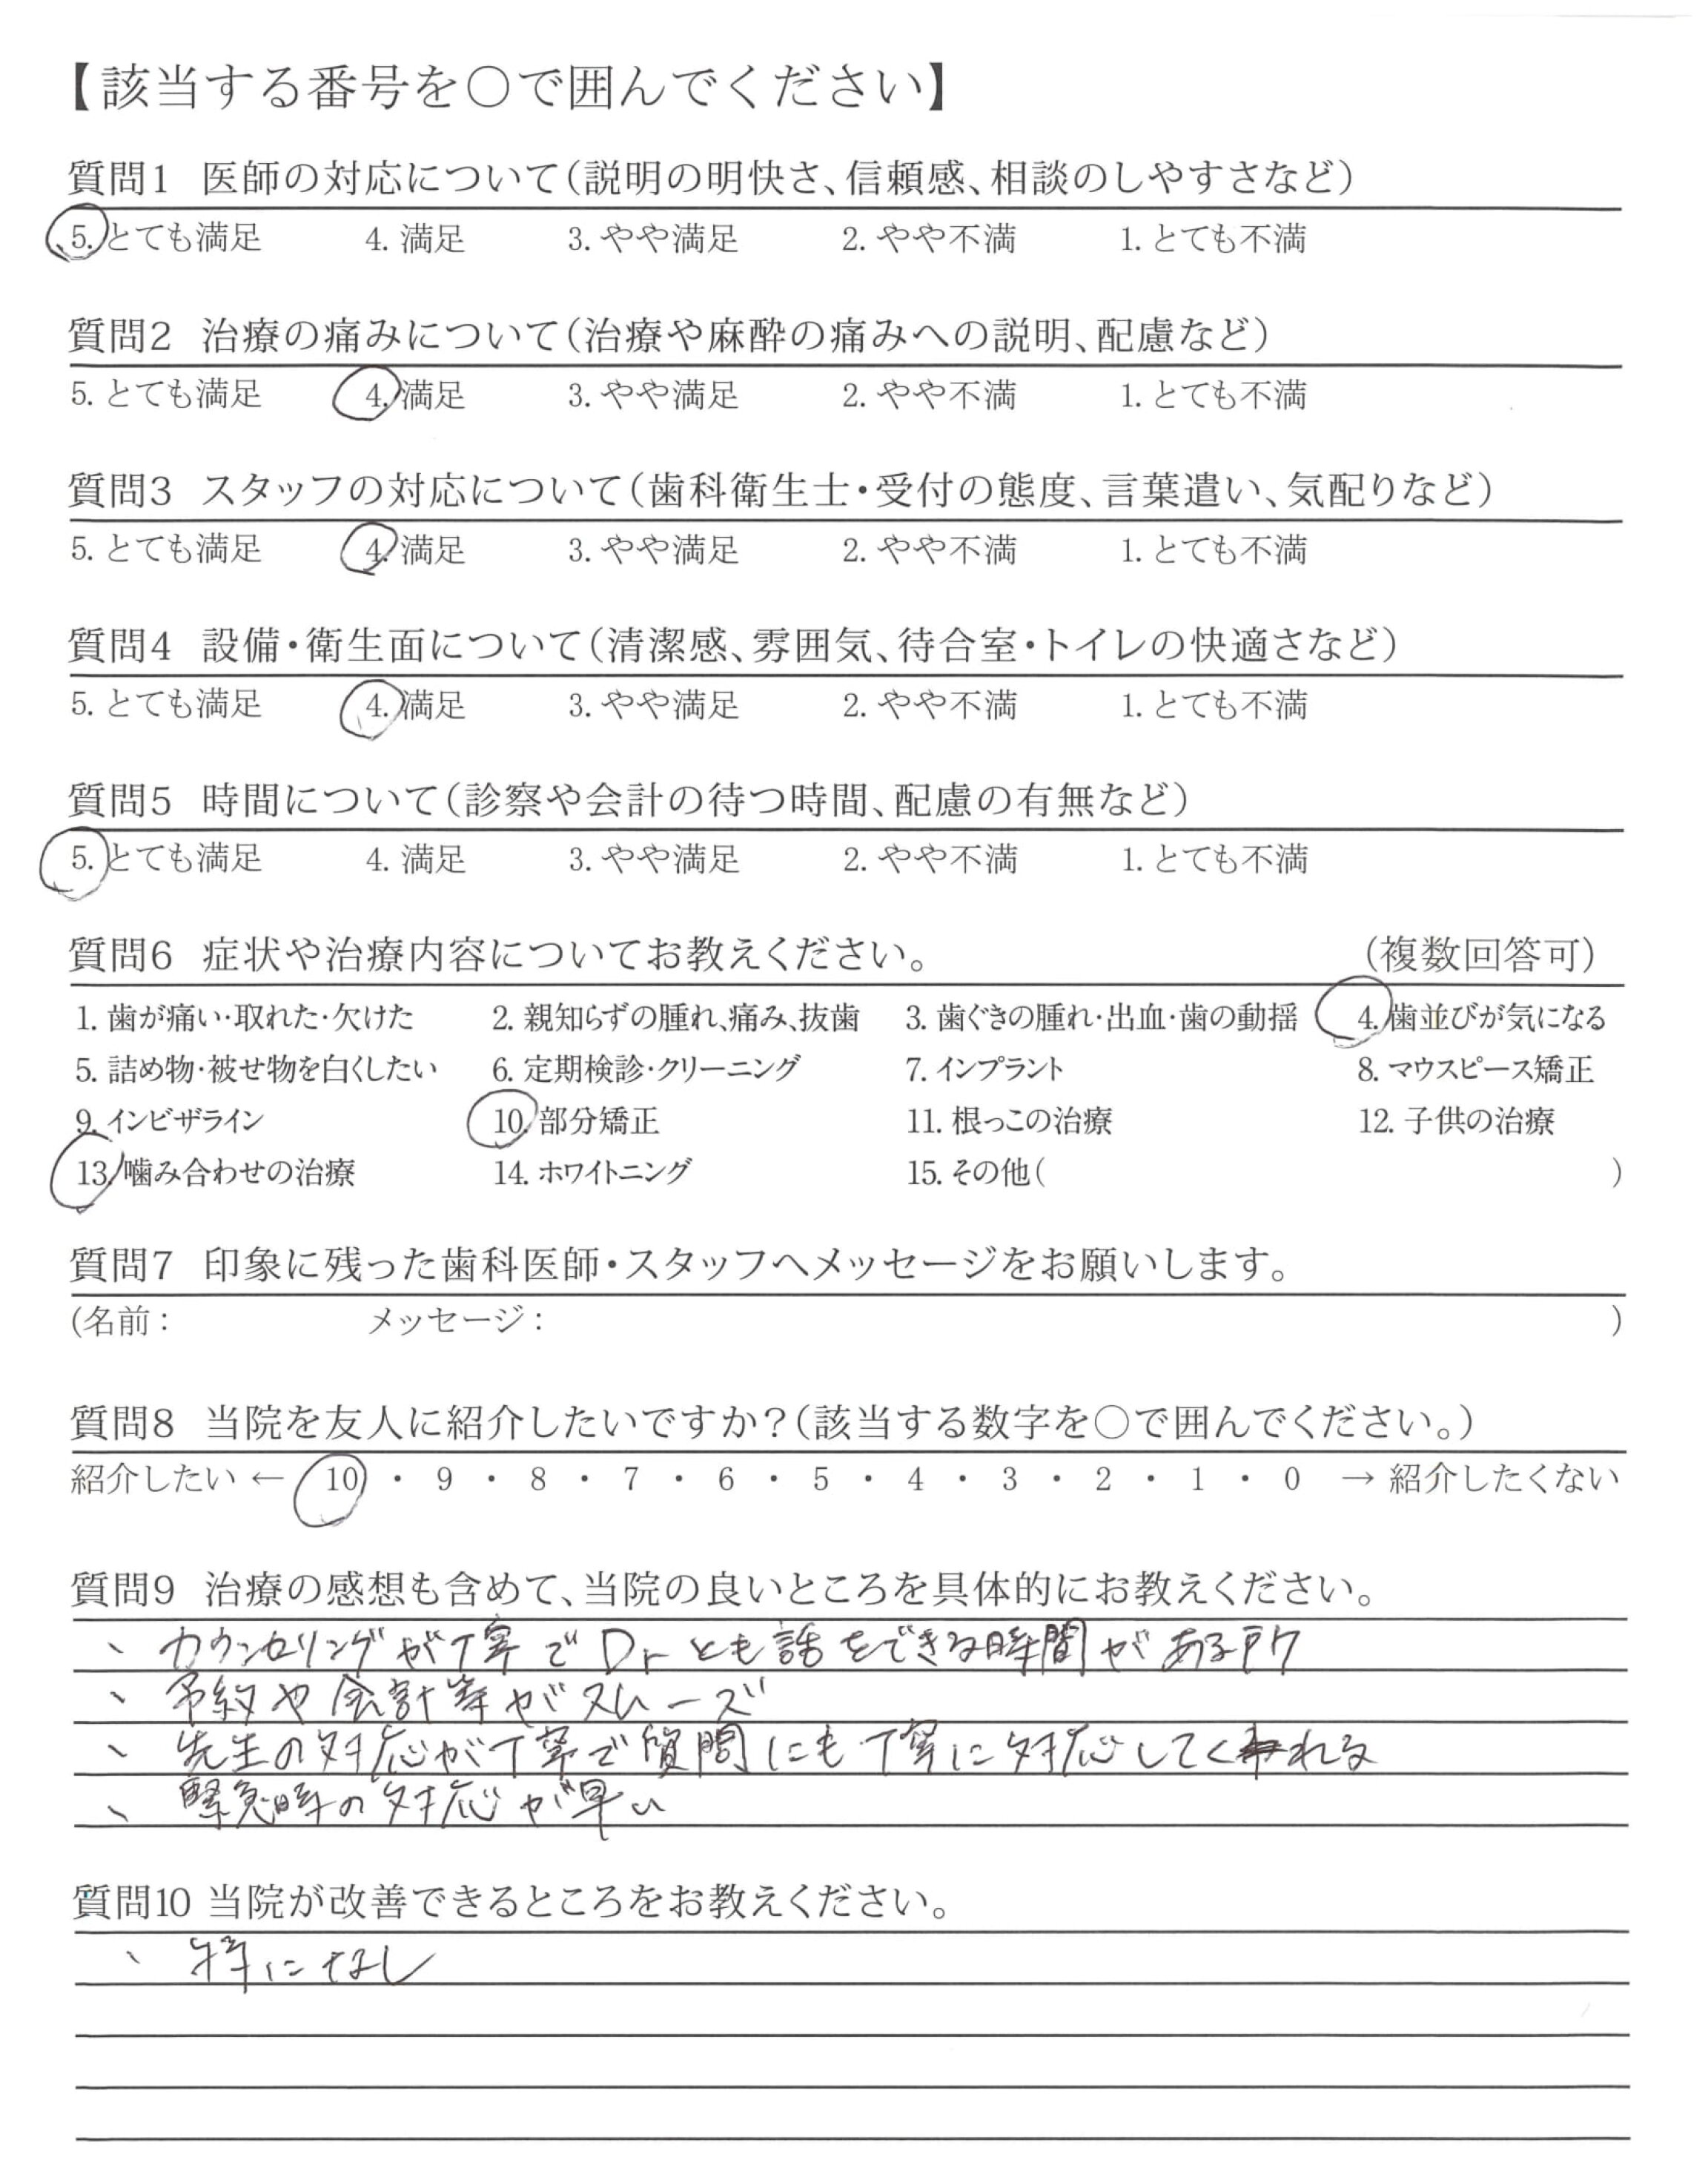 【該当する番号を〇で囲んでください】
質問1 医師の対応について(説明の明快さ、信頼感、相談のしやすさなど)
5. とても満足 4. 満足 3. やや満足 2. やや不満 1. とても不満
質問2 治療の痛みについて(治療や麻酔の痛みへの説明、配慮など)
5. とても満足 4. 満足 3. やや満足 2. やや不満 1. とても不満
質問3 スタッフの対応について(歯科衛生士・受付の態度、言葉遣い、気配りなど)
5. とても満足 4. 満足 3. やや満足 2. やや不満 1. とても不満
質問4 設備・衛生面について(清潔感、雰囲気、待合室・トイレの快適さなど)
5. とても満足 4. 満足 3. やや満足 2. やや不満 1. とても不満
質問5 時間について(診察や会計の待つ時間、配慮の有無など)
5. とても満足 4. 満足 3. やや満足 2. やや不満 1. とても不満
質問6 症状や治療内容についてお教えください。 (複数回答可)
1. 歯が痛い・取れた・欠けた 2. 親知らずの腫れ、痛み、抜歯 3. 歯ぐきの腫れ・出血・歯の動揺 4. 歯並びが気になる
5. 詰め物・被せ物を白くしたい 6. 定期検診・クリーニング 7. インプラント 8. マウスピース矯正
9. インビザライン 10. 部分矯正 11. 根っこの治療 12. 子供の治療
13. 噛み合わせの治療 14. ホワイトニング 15. その他( )
質問7 印象に残った歯科医師・スタッフへメッセージをお願いします。
(名前： メッセージ： )
質問8 当院を友人に紹介したいですか？(該当する数字を〇で囲んでください。)
紹介したい ← 10 ・ 9 ・ 8 ・ 7 ・ 6 ・ 5 ・ 4 ・ 3 ・ 2 ・ 1 ・ 0 → 紹介したくない
質問9 治療の感想も含めて、当院の良いところを具体的にお教えください。
、カウンセリングが丁寧でDrとも話をできる時間がある所
、予約や会計等がスムーズ
、先生の対応が丁寧で質問にも丁寧に対応してくれる
、緊急時の対応が早い
質問10 当院が改善できるところをお教えください。
、特になし